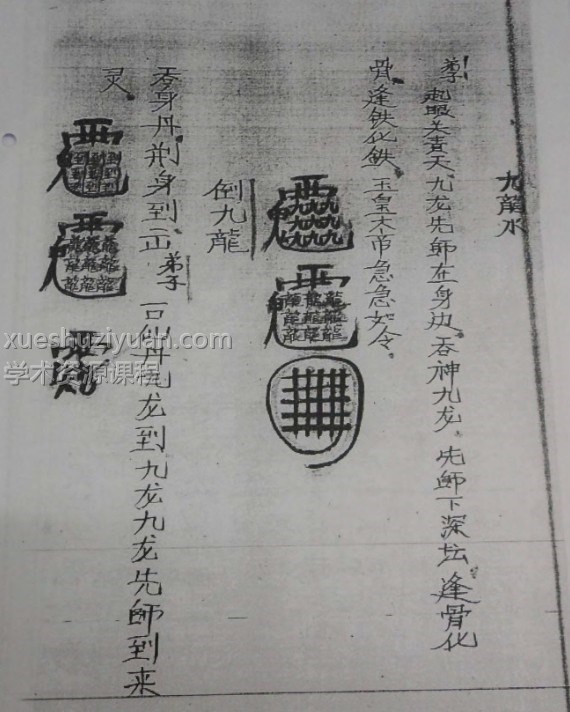 九龍水
起眼看青天。九龙先師在身边。吞神九龙。先師下深坛。逢骨化
骨逢铁化鉄。玉皇大帝急急如令。
倒九龍
弟子
吞身丹。荆身到。
仙丹九龙到九龙九龙先師到来
灵。
xueshuziyuan.com
学术资源课程